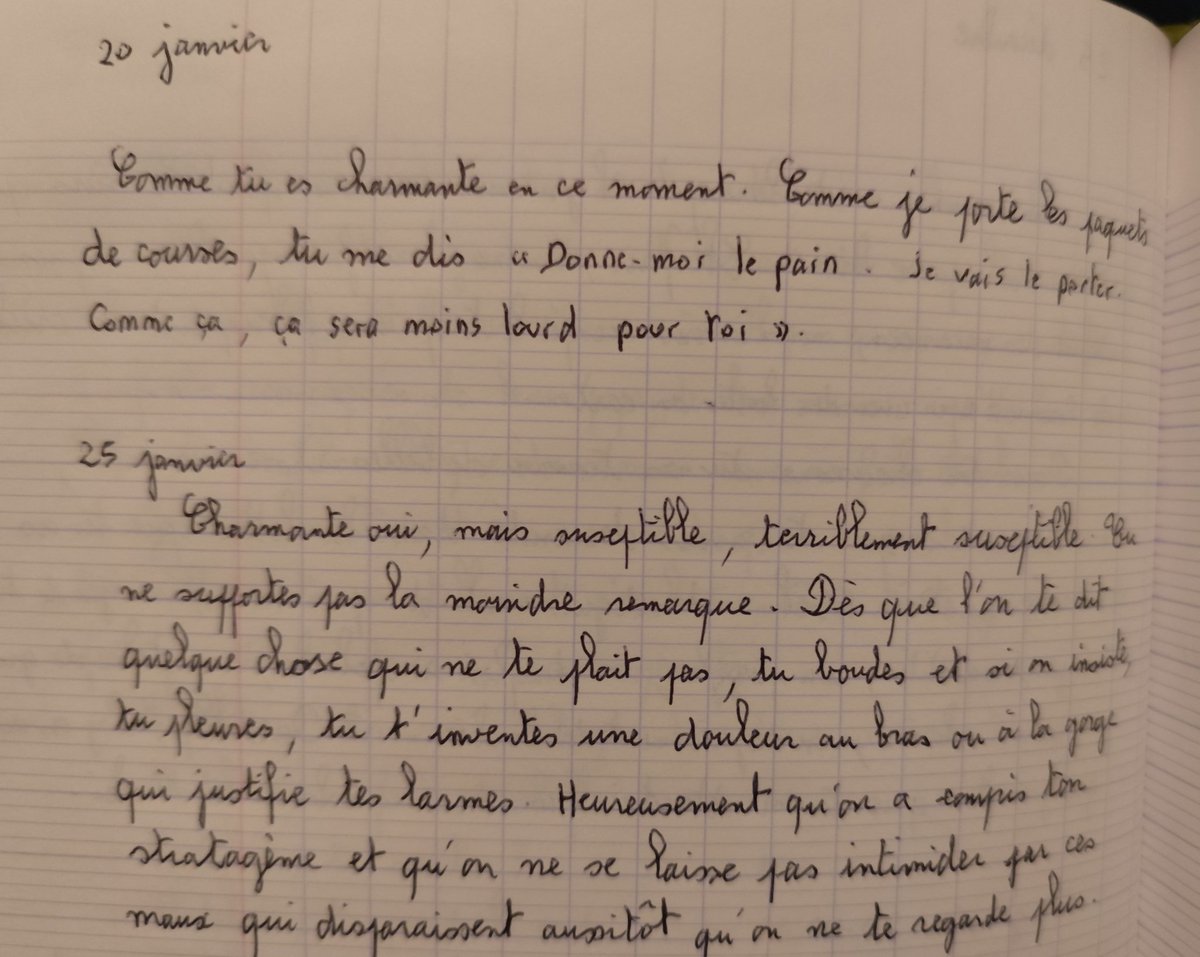 20 janvier
Comme tu es charmante en ce moment. Comme je porte les paquets
de courses, tu me dis « Donne-moi le pain. Je vais le porter.
Comme ça, ça sera moins lourd pour toi ».
25 janvier
Charmante oui, mais susceptible, terriblement susceptible. Tu
ne supportes pas la moindre remarque. Dès que l'on te dit
quelque chose qui ne te plait pas, tu boudes et si on insiste,
tu pleures, tu t'inventes une douleur au bras ou à la gorge
qui justifie tes larmes. Heureusement qu'on a compis ton
stratagème et qu'on ne se laisse pas intimider par ces
maux qui disparaissent aussitôt qu'on ne te regarde plus.